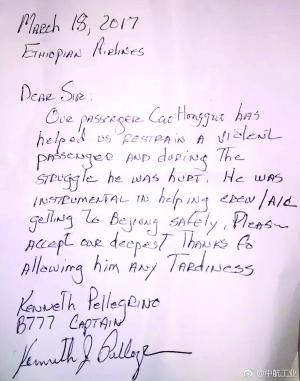 March 18, 2017
Ethiopian Airlines
Dear Sir:
Our passenger Cao Hongguo has
helped us restrain a violent
passenger and during the
struggle he was hurt. He was
instrumental in helping crew/A/C
getting to Beijing safely. Please
accept our deepest thanks for
allowing him any tardiness
Kenneth Pellegrino
B777 Captain
Kenneth J Pellegr
@中航工业